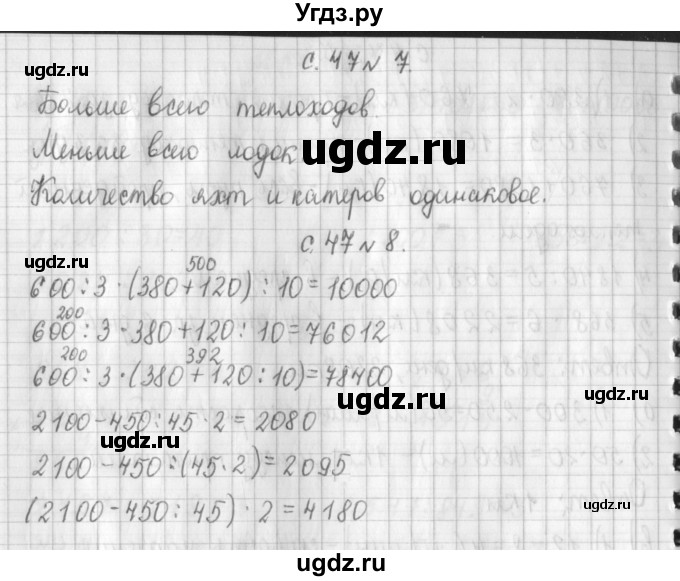 Угдз.ру
с. 47 № 7.
ugdz.ru
Больше всего теплоходов.
Меньше всего лодок
ugdz.ru
ugdz.ru
Количество яхт и катеров одинаковое.
с. 47 № 8.
ugdz.ru
500
600 : 3 · (380 + 120) : 10 = 10000
200
600 : 3 · 380 + 120 : 10 = 76012
200 392
600 : 3 · (380 + 120 : 10) = 78400
ugdz.ru
ugdz.ru
2100 - 450 : 45 · 2 = 2080
ugdz.ru
2100 - 450 : (45 · 2) = 2095
(2100 - 450 : 45) · 2 = 4180
ugdz.ru
ugdz.ru